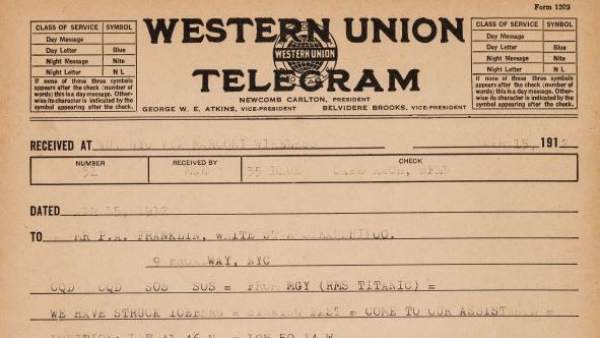 Form 1203
CLASS OF SERVICE SYMBOL
Day Message
Day Letter Blue
Night Message Nite
Night Letter N L
If none of these three symbols
appears after the check (number of
words) this is a day message. Other-
wise its character is indicated by the
symbol appearing after the check.
WESTERN UNION
WESTERN UNION
TELEGRAM
NEWCOMB CARLTON, PRESIDENT
GEORGE W. E. ATKINS, VICE-PRESIDENT BELVIDERE BROOKS, VICE-PRESIDENT
CLASS OF SERVICE SYMBOL
Day Message
Day Letter Blue
Night Message Nite
Night Letter N L
If none of these three symbols
appears after the check (number of
words) this is a day message. Other-
wise its character is indicated by the
symbol appearing after the check.
RECEIVED AT 15, 1912
NUMBER RECEIVED BY CHECK
35
DATED 15, 1912
TO MR P.A. FRANKLIN, WHITE STAR CO.
9 BROADWAY, NYC
CQD CQD SOS SOS = FROM MGY (RMS TITANIC) =
WE HAVE STRUCK ICEBERG = SINKING FAST = COME TO OUR ASSISTANCE =
LAT 41 46 N = LON 50 14 W